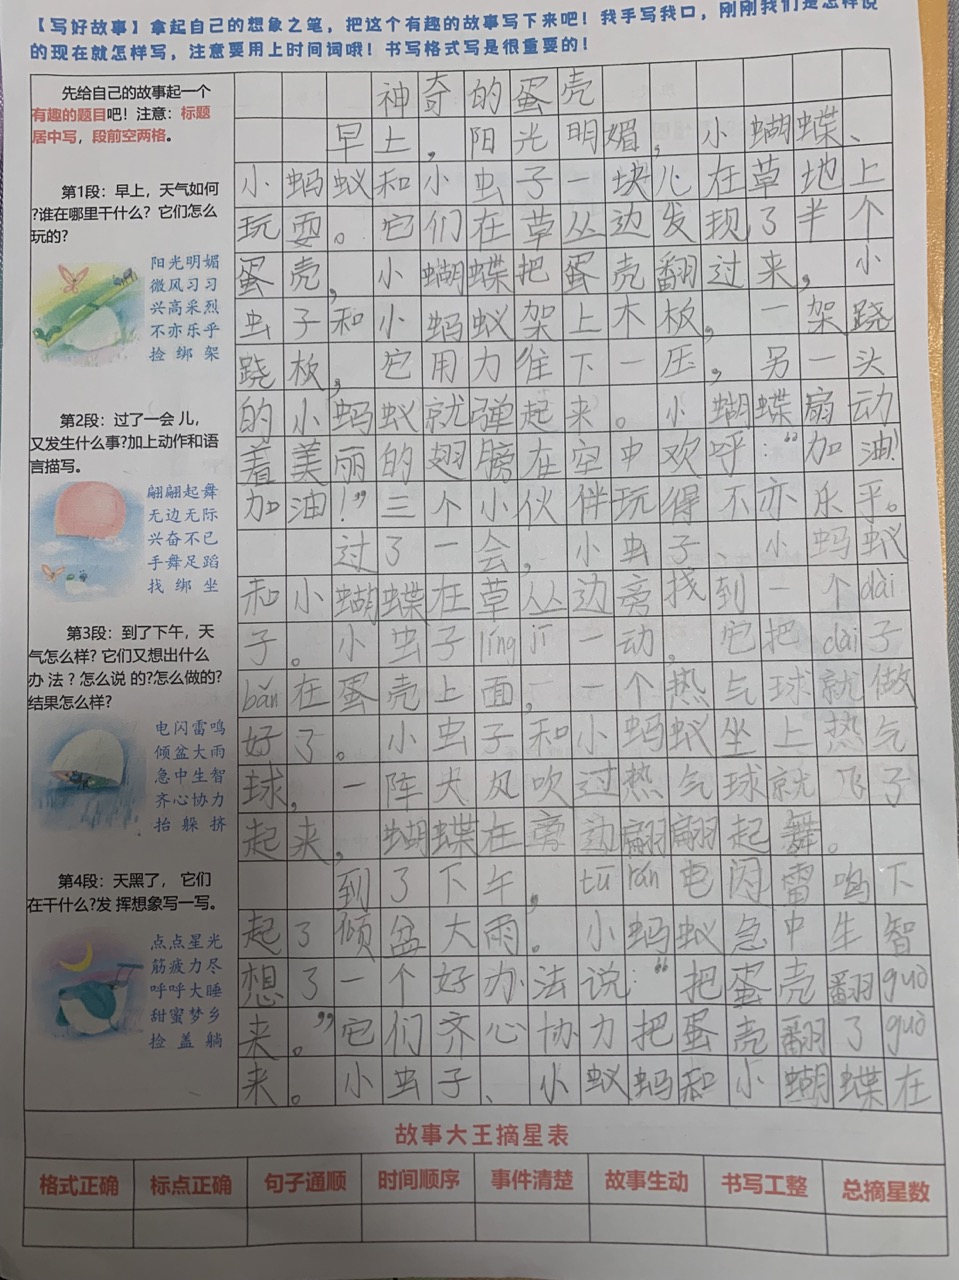 【写好故事】拿起自己的想象之笔，把这个有趣的故事写下来吧！我手写我口，刚刚我们是怎样说
的现在就怎样写，注意要用上时间词哦！书写格式写是很重要的！
先给自己的故事起一个
有趣的题目吧！注意：标题
居中写，段前空两格。
第1段：早上，天气如何
?谁在哪里干什么？它们怎么
玩的?
阳光明媚
微风习习
兴高采烈
不亦乐乎
捡 绑 架
第2段：过了一会 儿，
又发生什么事?加上动作和语
言描写。
翩翩起舞
无边无际
兴奋不已
手舞足蹈
找 绑 坐
第3段：到了下午，天
气怎么样? 它们又想出什么
办 法 ? 怎么说 的?怎么做的?
结果怎么样?
电闪雷鸣
倾盆大雨
急中生智
齐心协力
抬 躲 挤
第4段：天黑了， 它们
在干什么?发 挥想象写一写。
点点星光
筋疲力尽
呼呼大睡
甜蜜梦乡
捡 盖 躺
神奇的蛋壳
早上，阳光明媚，小蝴蝶、
小蚂蚁和小虫子一块儿在草地上
玩耍。它们在草丛边发现了半个
蛋壳，小蝴蝶把蛋壳翻过来，小
虫子和小蚂蚁架上木板，一架跷
跷板，它用力往下一压，另一头
的小蚂蚁就弹起来。小蝴蝶扇动
着美丽的翅膀在空中欢呼："加油!
加油!"三个小伙伴玩得不亦乐乎。
过了一会，小虫子、小蚂蚁
和小蝴蝶在草丛边旁找到一个dài
子。小虫子líng jī一动，它把dài子
bǎn在蛋壳上面，一个热气球就做
好了。小虫子和小蚂蚁坐上热气
球，一阵大风吹过热气球就飞了
起来，蝴蝶在旁边翩翩起舞。
到了下午，tū rán电闪雷鸣下
起了倾盆大雨。小蚂蚁急中生智
想了一个好办法说："把蛋壳翻guò
来。"它们齐心协力把蛋壳翻了guò
来。小虫子、小蚁蚂和小蝴蝶在
故事大王摘星表
格式正确 标点正确 句子通顺 时间顺序 事件清楚 故事生动 书写工整 总摘星数